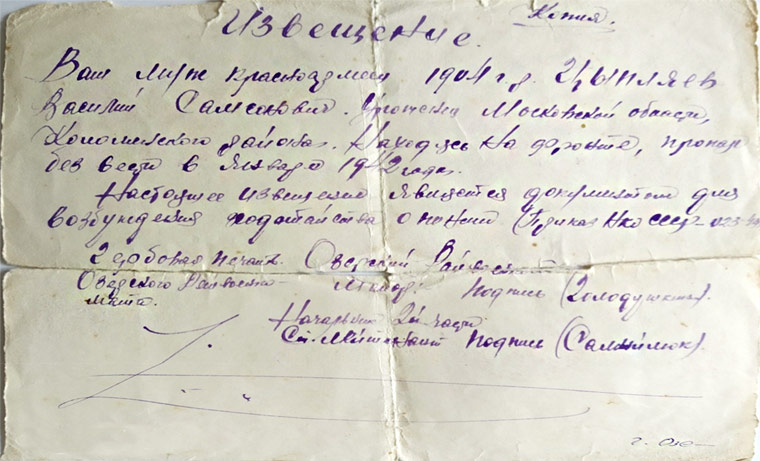 Копия.
Извещение.
Ваш муж красноармеец 1904 г.р. Цыпляев
Василий Самсонович. Уроженец Московской области,
Коломенского района. Находясь на фронте, пропал
без вести в Январе 1942 года.
Настоящее извещение является документом для
возбуждения ходотайства о пенсии (Приказ НКО СССР
Гербовая печать. Озерский Райвоенкомат
Озерского Райвоенко-
мата. Майор: подпись (Голодушкин).
Начальник 2й части
Ст. Лейтенант подпись
г. Озе